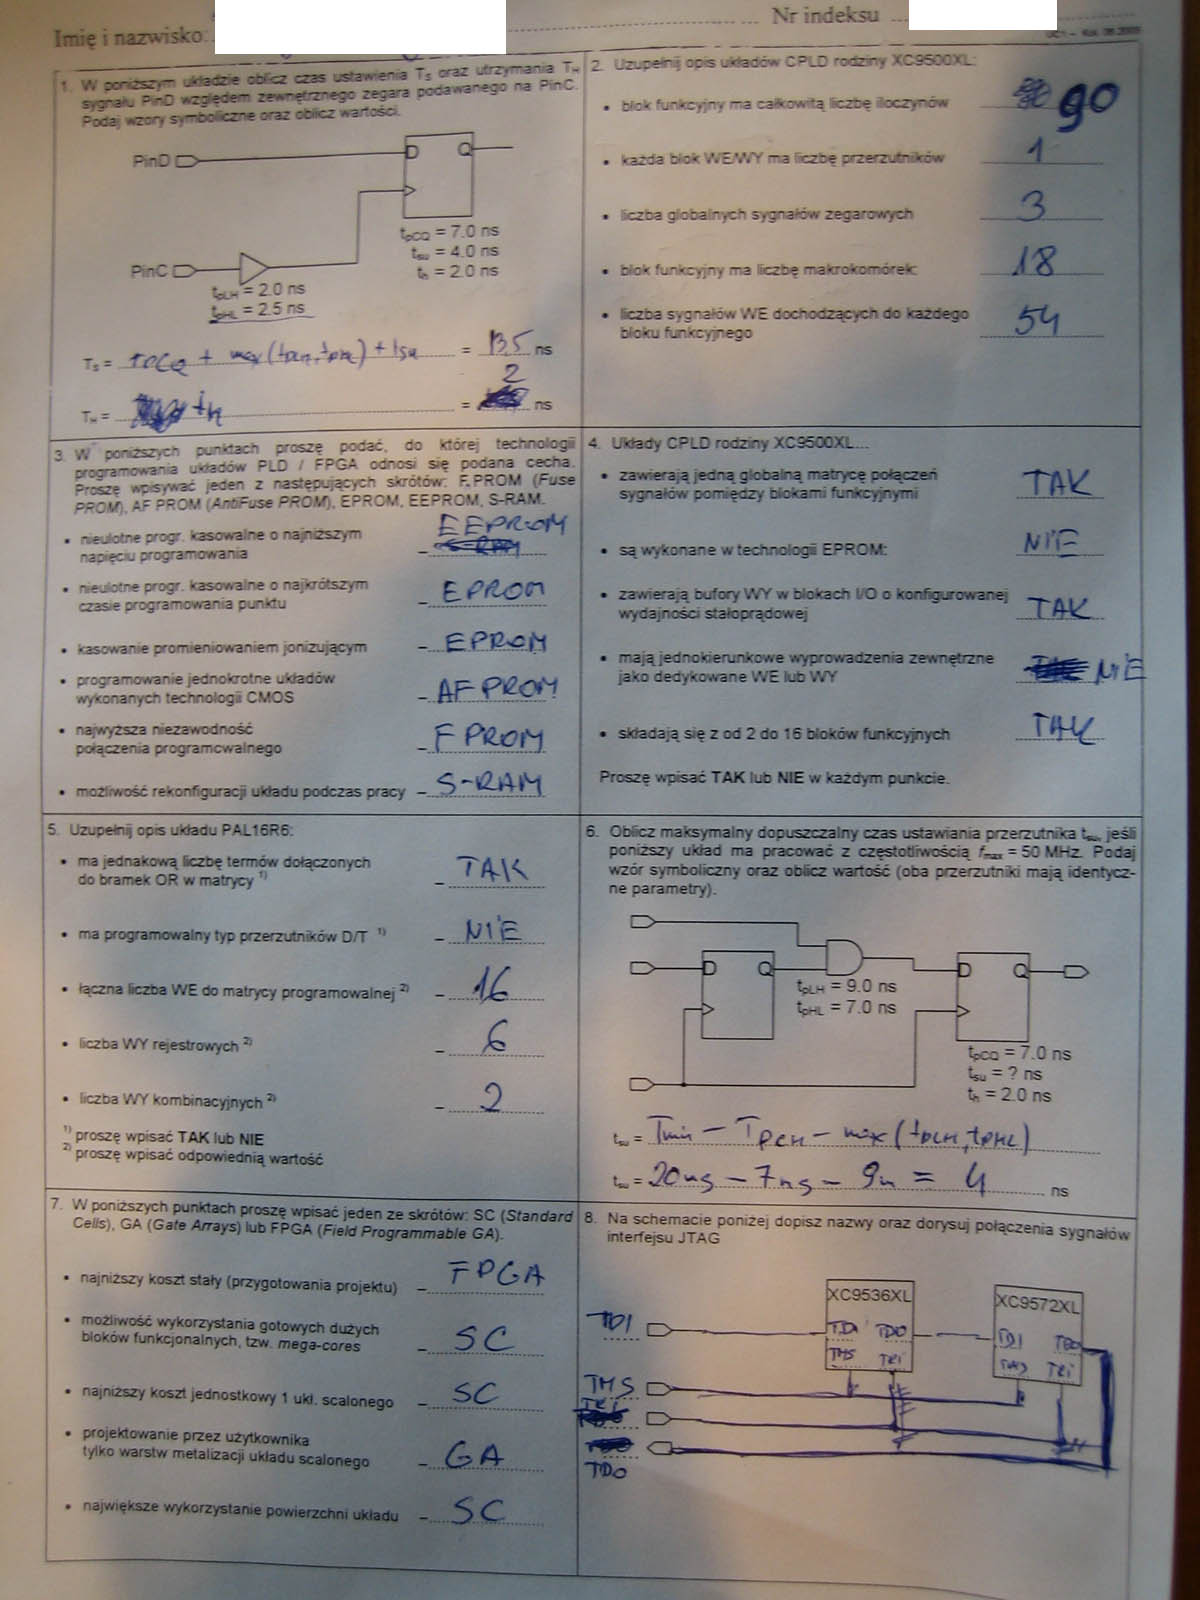 Imię i nazwisko:
Nr indeksu
1. W poniższym układzie oblicz czas ustawienia Ts oraz utrzymania TH
sygnału PinD względem zewnętrznego zegara podawanego na PinC.
Podaj wzory symboliczne oraz oblicz wartości.
PinD
D Q
tpCQ = 7.0 ns
tsu = 4.0 ns
th = 2.0 ns
PinC
tpLH = 2.0 ns
tpHL = 2.5 ns
Ts = tpCQ + max(tpLH, tpHL) + tsu = 13,5 ns
TH = th = 2 ns
2. Uzupełnij opis układów CPLD rodziny XC9500XL:
• blok funkcyjny ma całkowitą liczbę iloczynów 90
• każda blok WE/WY ma liczbę przerzutników 1
• liczba globalnych sygnałów zegarowych 3
• blok funkcyjny ma liczbę makrokomórek: 18
• liczba sygnałów WE dochodzących do każdego
bloku funkcyjnego 54
3. W poniższych punktach proszę podać, do której technologii
programowania układów PLD / FPGA odnosi się podana cecha.
Proszę wpisywać jeden z następujących skrótów: F.PROM (Fuse
PROM), AF PROM (AntiFuse PROM), EPROM, EEPROM, S-RAM.
• nieulotne progr. kasowalne o najniższym
napięciu programowania – EEPROM
• nieulotne progr. kasowalne o najkrótszym
czasie programowania punktu – EPROM
• kasowanie promieniowaniem jonizującym – EPROM
• programowanie jednokrotne układów
wykonanych technologii CMOS – AF PROM
• najwyższa niezawodność
połączenia programowalnego – F PROM
• możliwość rekonfiguracji układu podczas pracy – S-RAM
4. Układy CPLD rodziny XC9500XL...
• zawierają jedną globalną matrycę połączeń
sygnałów pomiędzy blokami funkcyjnymi TAK
• są wykonane w technologii EPROM: NIE
• zawierają bufory WY w blokach I/O o konfigurowanej
wydajności stałoprądowej TAK
• mają jednokierunkowe wyprowadzenia zewnętrzne
jako dedykowane WE lub WY NIE
• składają się z od 2 do 16 bloków funkcyjnych TAK
Proszę wpisać TAK lub NIE w każdym punkcie.
5. Uzupełnij opis układu PAL16R6:
• ma jednakową liczbę termów dołączonych
do bramek OR w matrycy 1) – TAK
• ma programowalny typ przerzutników D/T 1) – NIE
• łączna liczba WE do matrycy programowalnej 2) – 16
• liczba WY rejestrowych 2) – 6
• liczba WY kombinacyjnych 2) – 2
1) proszę wpisać TAK lub NIE
2) proszę wpisać odpowiednią wartość
6. Oblicz maksymalny dopuszczalny czas ustawiania przerzutnika tsu, jeśli
poniższy układ ma pracować z częstotliwością fmax = 50 MHz. Podaj
wzór symboliczny oraz oblicz wartość (oba przerzutniki mają identycz-
ne parametry).
D Q
D Q
tpLH = 9.0 ns
tpHL = 7.0 ns
tpCQ = 7.0 ns
tsu = ? ns
th = 2.0 ns
tsu = Tmin – TpCH – max (tpLH, tpHL)
tsu = 20ns – 7ns – 9n = 4 ns
7. W poniższych punktach proszę wpisać jeden ze skrótów: SC (Standard
Cells), GA (Gate Arrays) lub FPGA (Field Programmable GA).
• najniższy koszt stały (przygotowania projektu) – FPGA
• możliwość wykorzystania gotowych dużych
bloków funkcjonalnych, tzw. mega-cores – SC
• najniższy koszt jednostkowy 1 ukł. scalonego – SC
• projektowanie przez użytkownika
tylko warstw metalizacji układu scalonego – GA
• największe wykorzystanie powierzchni układu – SC
8. Na schemacie poniżej dopisz nazwy oraz dorysuj połączenia sygnałów
interfejsu JTAG
XC9536XL
XC9572XL
TDI
TDI TDO
TDI TDO
TMS
TMS
TMS
TDO